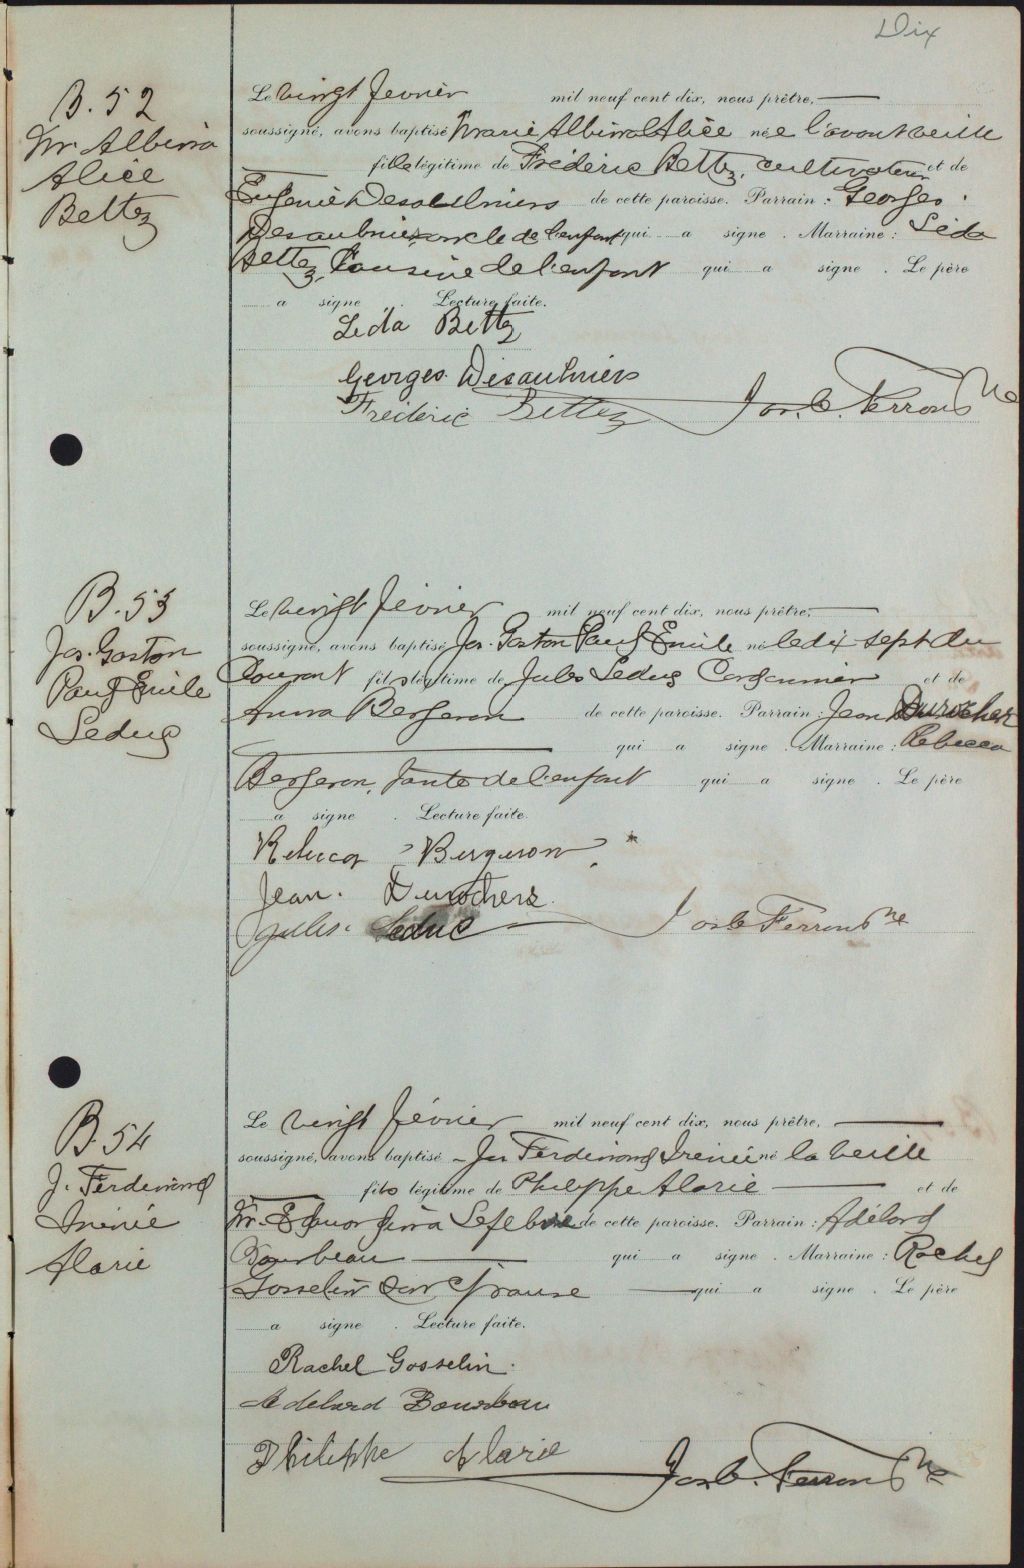 Dix
B. 52
Mr. Albina
Alice
Bettez
Le vingt fevrier mil neuf cent dix, nous prêtre,
soussigné, avons baptisé Marie Albina Alice née l'avant veille
fille légitime de Fréderic Bettez, cultivateur et de
Eugenie Desaulniers de cette paroisse. Parrain : Georges
Desaulniers oncle de l'enfant qui a signé. Marraine : Léda
Bettez, Cousine de l'enfant qui a signé. Le père
a signé. Lecture faite.
Leda Bettez
Georges Desaulniers
Frédéric Bettez Jos. C. Ferron Ptre
B. 53
Jos. Gaston
Paul Emile
Leduc
Le vingt février mil neuf cent dix, nous prêtre,
soussigné, avons baptisé Jos. Gaston Paul Emile né le dix sept du
Courant fils légitime de Jules Leduc Cordonnier et de
Anna Bergeron de cette paroisse. Parrain : Jean Durocher
qui a signé. Marraine : Rebecca
Bergeron, Tante de l'enfant qui a signé. Le père
a signé. Lecture faite.
Rebecca Bergeron
Jean Durochers
Jules Leduc Jos C Ferron Ptre
B. 54
J. Ferdinand
Irénié
Alarie
Le vingt février mil neuf cent dix, nous prêtre,
soussigné, avons baptisé Jos Ferdinand Irénié né la veille
fils légitime de Philippe Alarie et de
Mr. Lefebvre de cette paroisse. Parrain : Adélard
Bourbeau qui a signé. Marraine : Rachel
Gosselin son épouse qui a signé. Le père
a signé. Lecture faite.
Rachel Gosselin.
Adelard Bourbeau
Philippe Alarie Jos C. Ferron Ptre